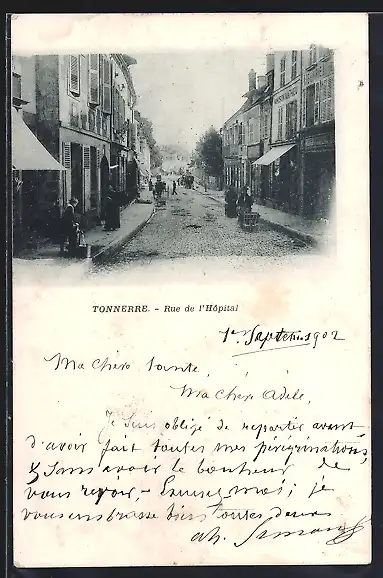 TONNERRE. - Rue de l'Hôpital
1er Septembre 1902
Ma chère tante,
Ma chère Adèle,
Je suis obligé de repartir avant
d'avoir fait toutes mes pérégrinations,
& sans avoir le bonheur de
vous revoir, - Excusez moi; je
vous embrasse bien toutes deux